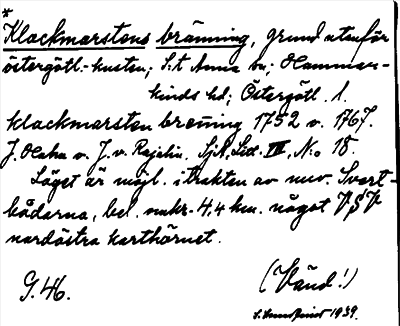 *
Klackmarstens bränning, grund utanför
östergötl.-kusten; S:t Anna sn; Hammar-
kinds hd; Östergötl. l.
klackmarsten brening 1752 o. 1767.
J. Hahn o. J. v. Rajalin. SjK, Sect. III, N:o 18.
Läget är möjl. i trakten av nuv. Svart-
bådarna, bel. omkr. 4,4 km. något VSV
nordöstra karthörnet.
G. 46.
(Vänd!)
1939.